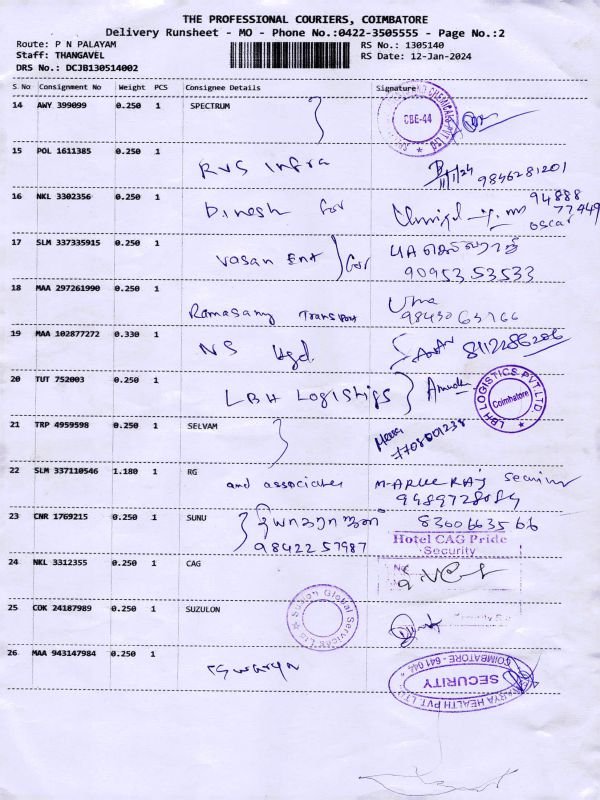 THE PROFESSIONAL COURIERS, COIMBATORE
Delivery Runsheet - MO - Phone No.:0422-3505555 - Page No.:2
Route: P N PALAYAM
RS No.: 1305140
Staff: THANGAVEL
RS Date: 12-Jan-2024
DRS No.: DCJB130514002
S No Consignment No Weight PCS Consignee Details Signature
14 AWY 399099 0.250 1 SPECTRUM
CBE-44
15 POL 1611385 0.250 1
RVS Infra
11/1/24 9846281201
16 NKL 3302356 0.250 1
Dinesh for
94888
77449
oscar
17 SLM 337335915 0.250 1
Vasan Ent for
90953 53533
18 MAA 297261990 0.250 1
Ramasamy Transport
Uma
19 MAA 102877272 0.330 1
NS
8112286206
20 TUT 752003 0.250 1
LBH Logistigs
LBH LOGISTICS PVT.LTD.
Coimbatore
21 TRP 4959598 0.250 1 SELVAM
7708001238
22 SLM 337110546 1.180 1 RG
and associates
M-ARUL RAJ
9489728084
23 CNR 1769215 0.250 1 SUNU
98422 57987
8360663566
Hotel CAG Pride
Security
24 NKL 3312355 0.250 1 CAG
25 COK 24187989 0.250 1 SUZULON
Suzlon Global Services Ltd
26 MAA 943147984 0.250 1
SECURITY
COIMBATORE - 641 044
HEALTH PVT. LTD